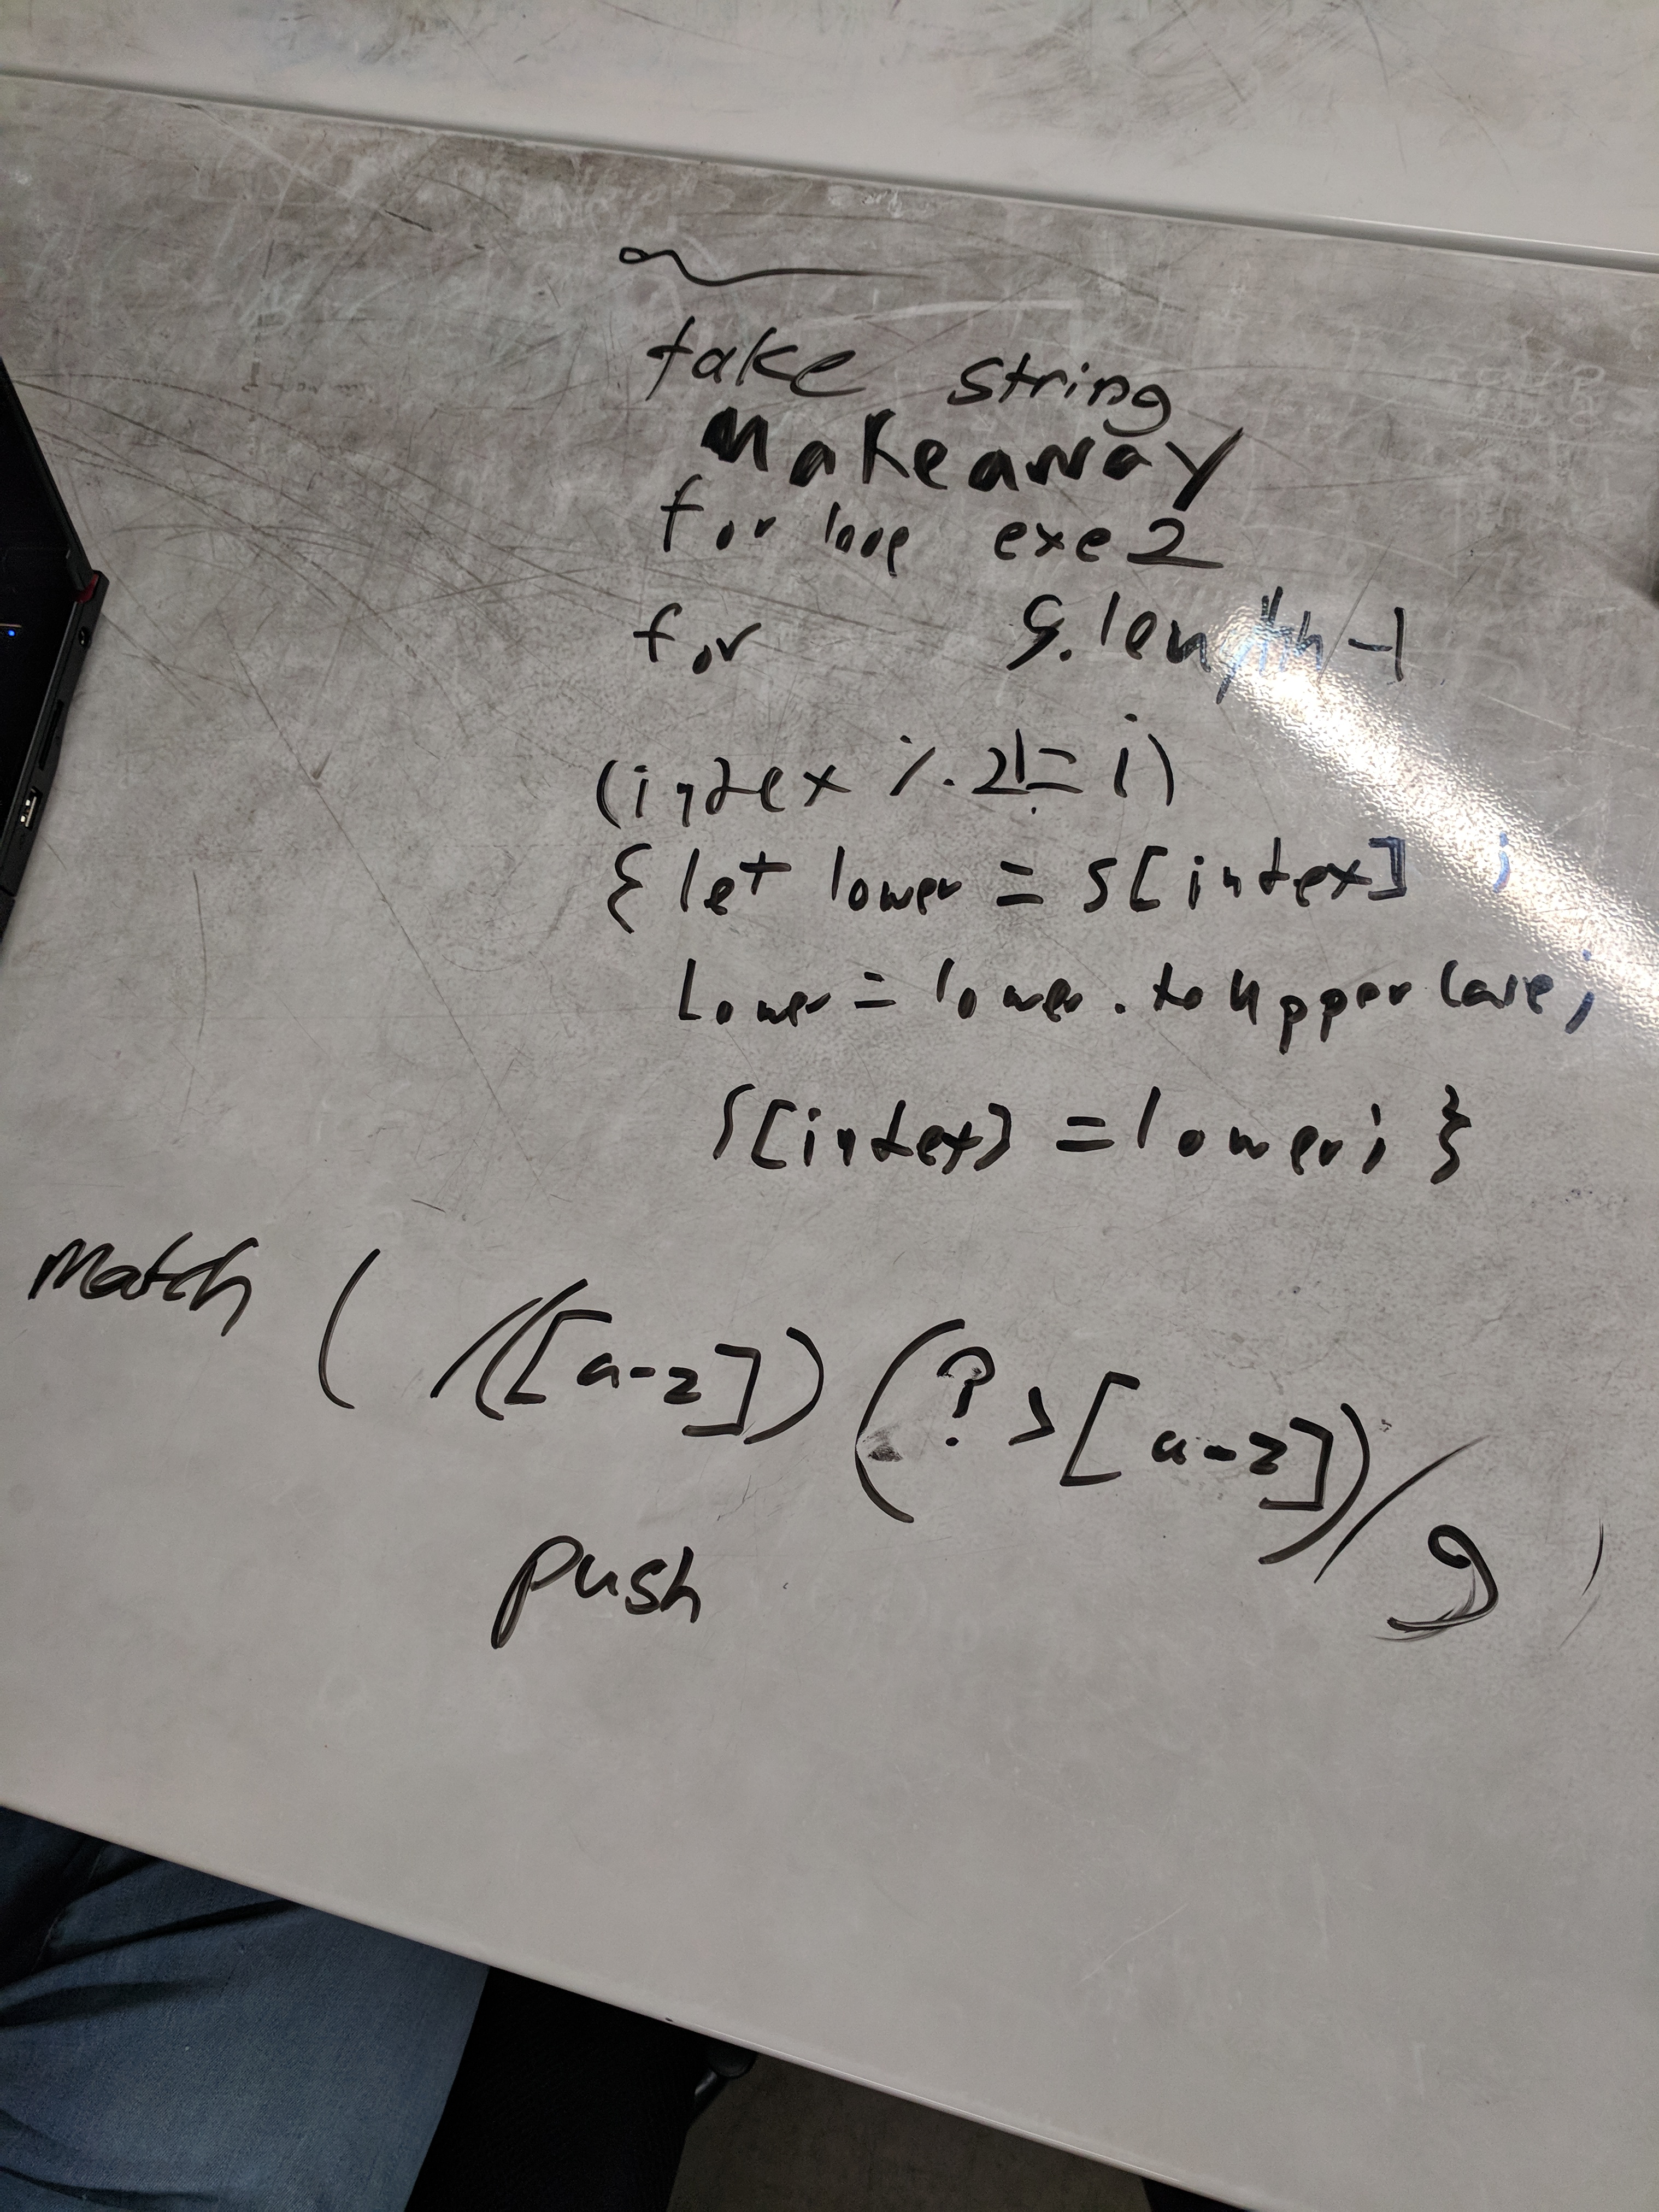 take string
Make array
for loop exe 2
for s.length-1
(intex % 2 != i)
{ let lower = s[intex] ;
Lower = lower.toUpperCase;
s[intex] = lower; }
Match ( /([a-z])(?>[a-z])/g )
push